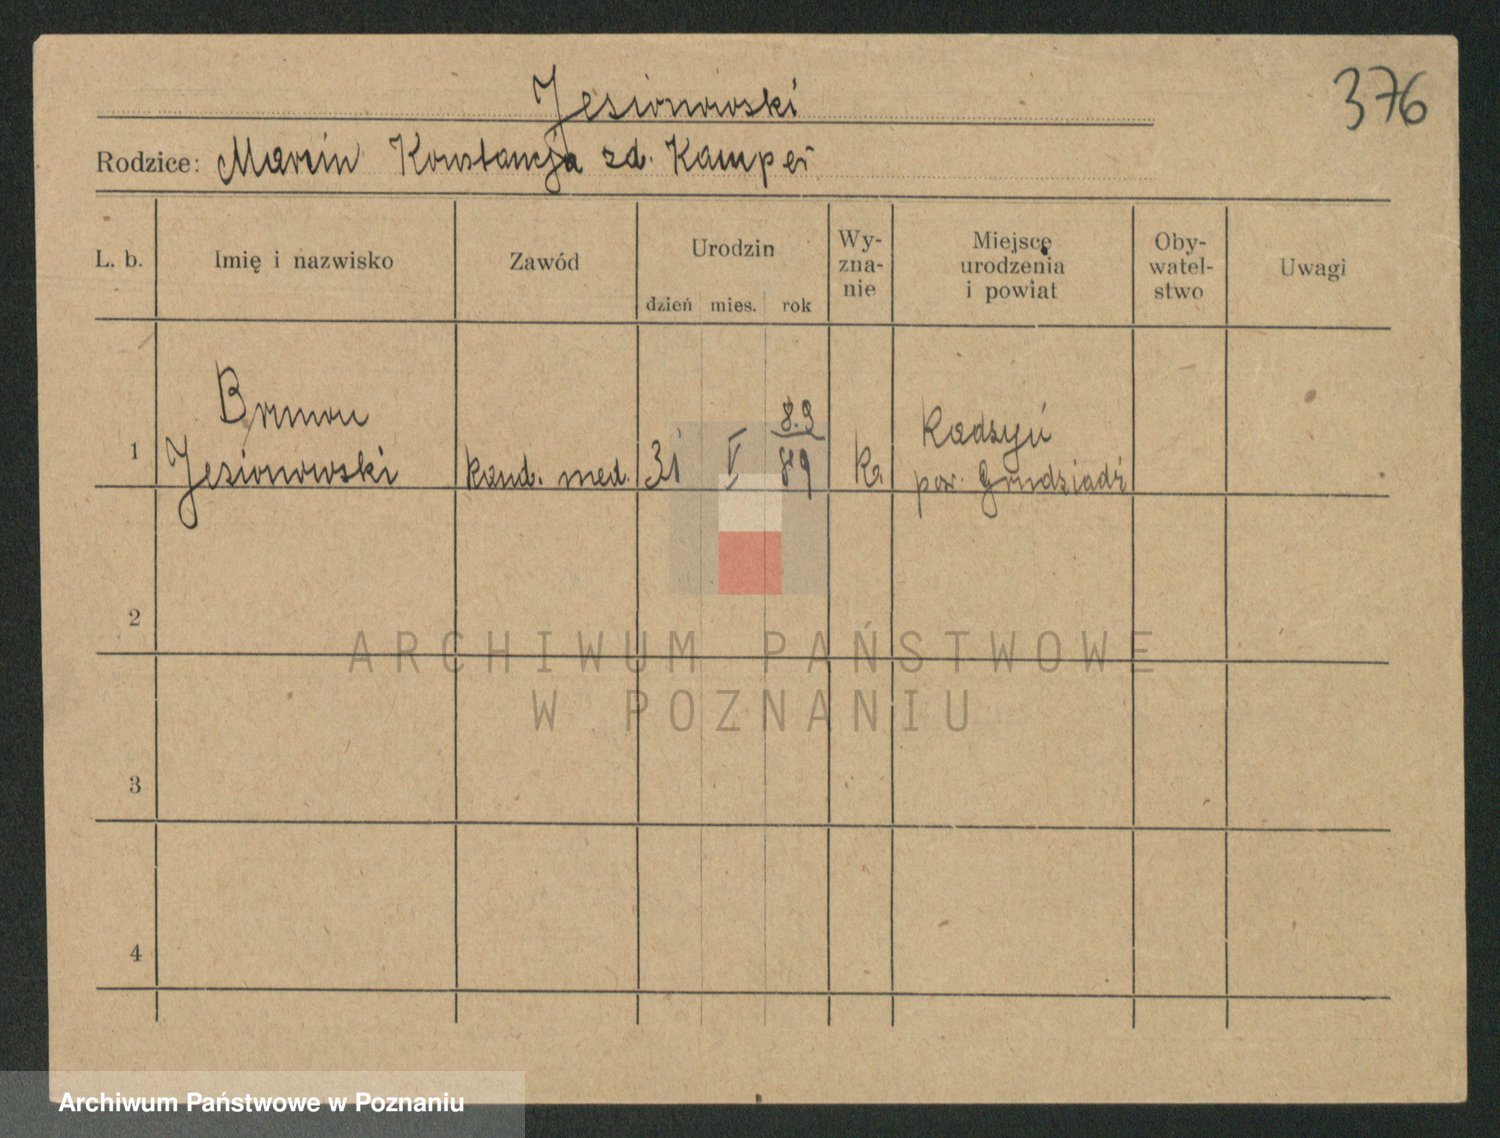 376
Jesionowski
Rodzice: Marcin Konstancja zd. Kamper
L. b.
Imię i nazwisko
Zawód
Urodzin
dzień mies. rok
Wy-
zna-
nie
Miejsce
urodzenia
i powiat
Oby-
watel-
stwo
Uwagi
1
Brunon
Jesionowski
kand. med.
31 V 89
8.9
k.
Radzyń
pow. Grudziądz
2
3
4
ARCHIWUM PAŃSTWOWE
W POZNANIU
Archiwum Państwowe w Poznaniu